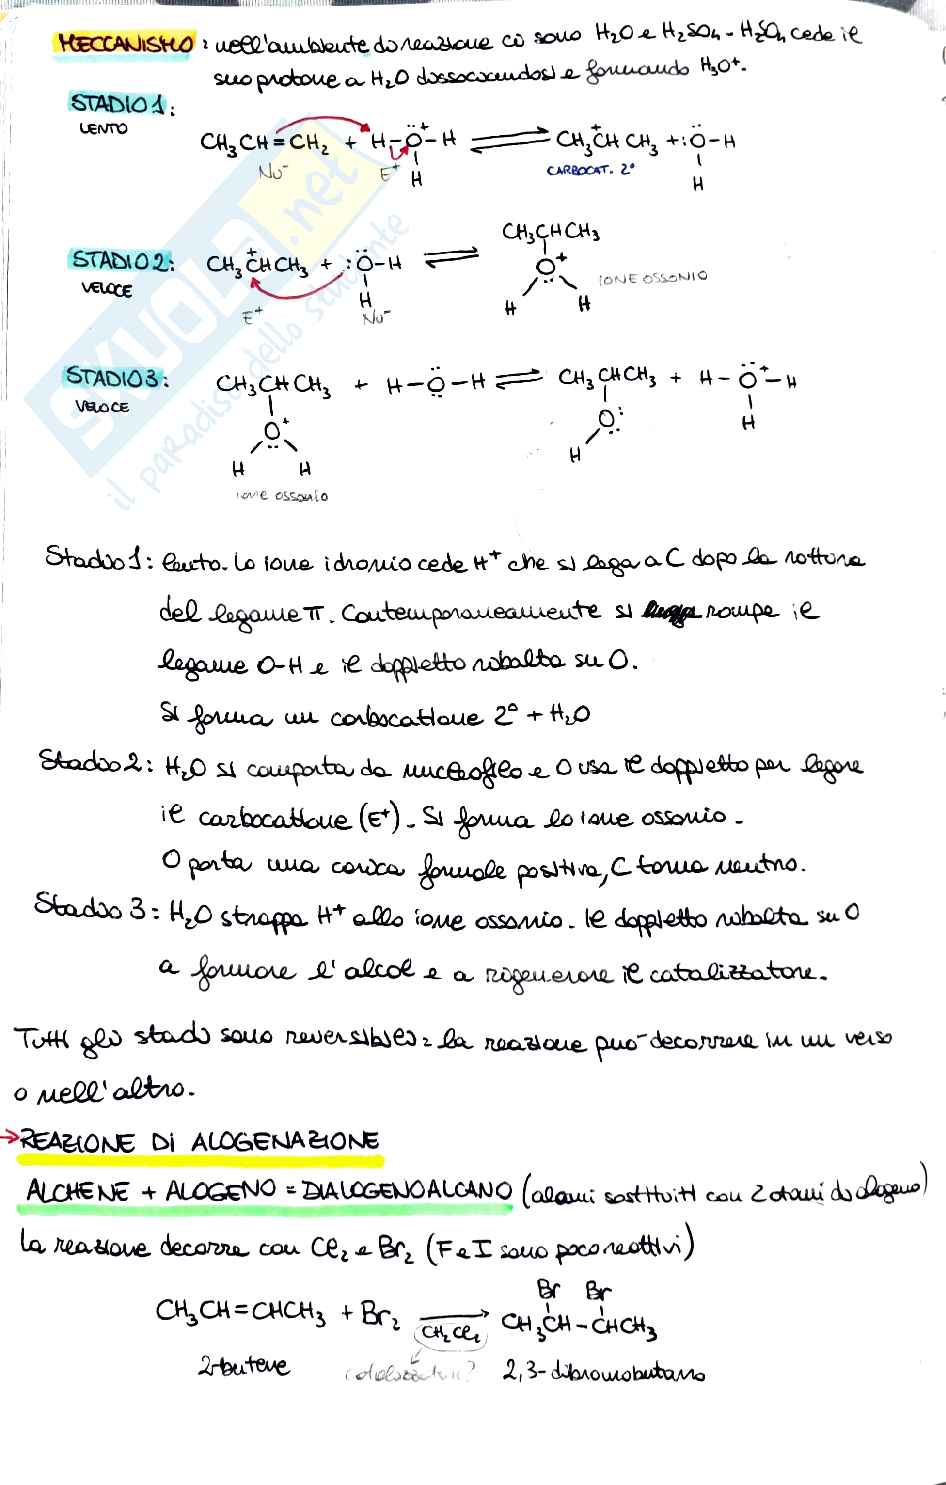 MECCANISMO: nell'ambiente di reazione ci sono H₂O e H₂SO₄ - H₂SO₄ cede il
suo protone a H₂O dissociandosi e formando H₃O⁺.
STADIO 1:
LENTO
CH₃CH=CH₂ + H-Ö⁺-H ⇌ CH₃C⁺HCH₃ + :Ö-H
Nu⁻ E⁺ H CARBOCAT. 2° H
CH₃CHCH₃
STADIO 2: CH₃C⁺HCH₃ + :Ö-H ⇌ O⁺ IONE OSSONIO
VELOCE H H H
E⁺ Nu⁻
STADIO 3: CH₃CHCH₃ + H-Ö-H ⇌ CH₃CHCH₃ + H-Ö⁺-H
VELOCE O⁺ O: H
H H H
IONE OSSONIO
Stadio 1: lento. Lo ione idronio cede H⁺ che si lega a C dopo la rottura
del legame π. Contemporaneamente si rompe il
legame O-H e il doppietto ribalta su O.
Si forma un carbocatione 2° + H₂O
Stadio 2: H₂O si comporta da nucleofilo e O usa il doppietto per legare
il carbocatione (E⁺). Si forma lo ione ossonio.
O porta una carica formale positiva, C torna neutro.
Stadio 3: H₂O strappa H⁺ allo ione ossonio. Il doppietto ribalta su O
a formare l'alcol e a rigenerare il catalizzatore.
Tutti gli stadi sono reversibili: la reazione può decorrere in un verso
o nell'altro.
→ REAZIONE DI ALOGENAZIONE
ALCHENE + ALOGENO = DIALOGENOALCANO (alcani sostituiti con 2 atomi di alogeno)
La reazione decorre con Cl₂ e Br₂ (F e I sono poco reattivi)
Br Br
CH₃CH=CHCH₃ + Br₂ → CH₃CH-CHCH₃
CH₂Cl₂
2-butene 2,3-dibromobutano
SKUOLA.net
il paradiso dello studente